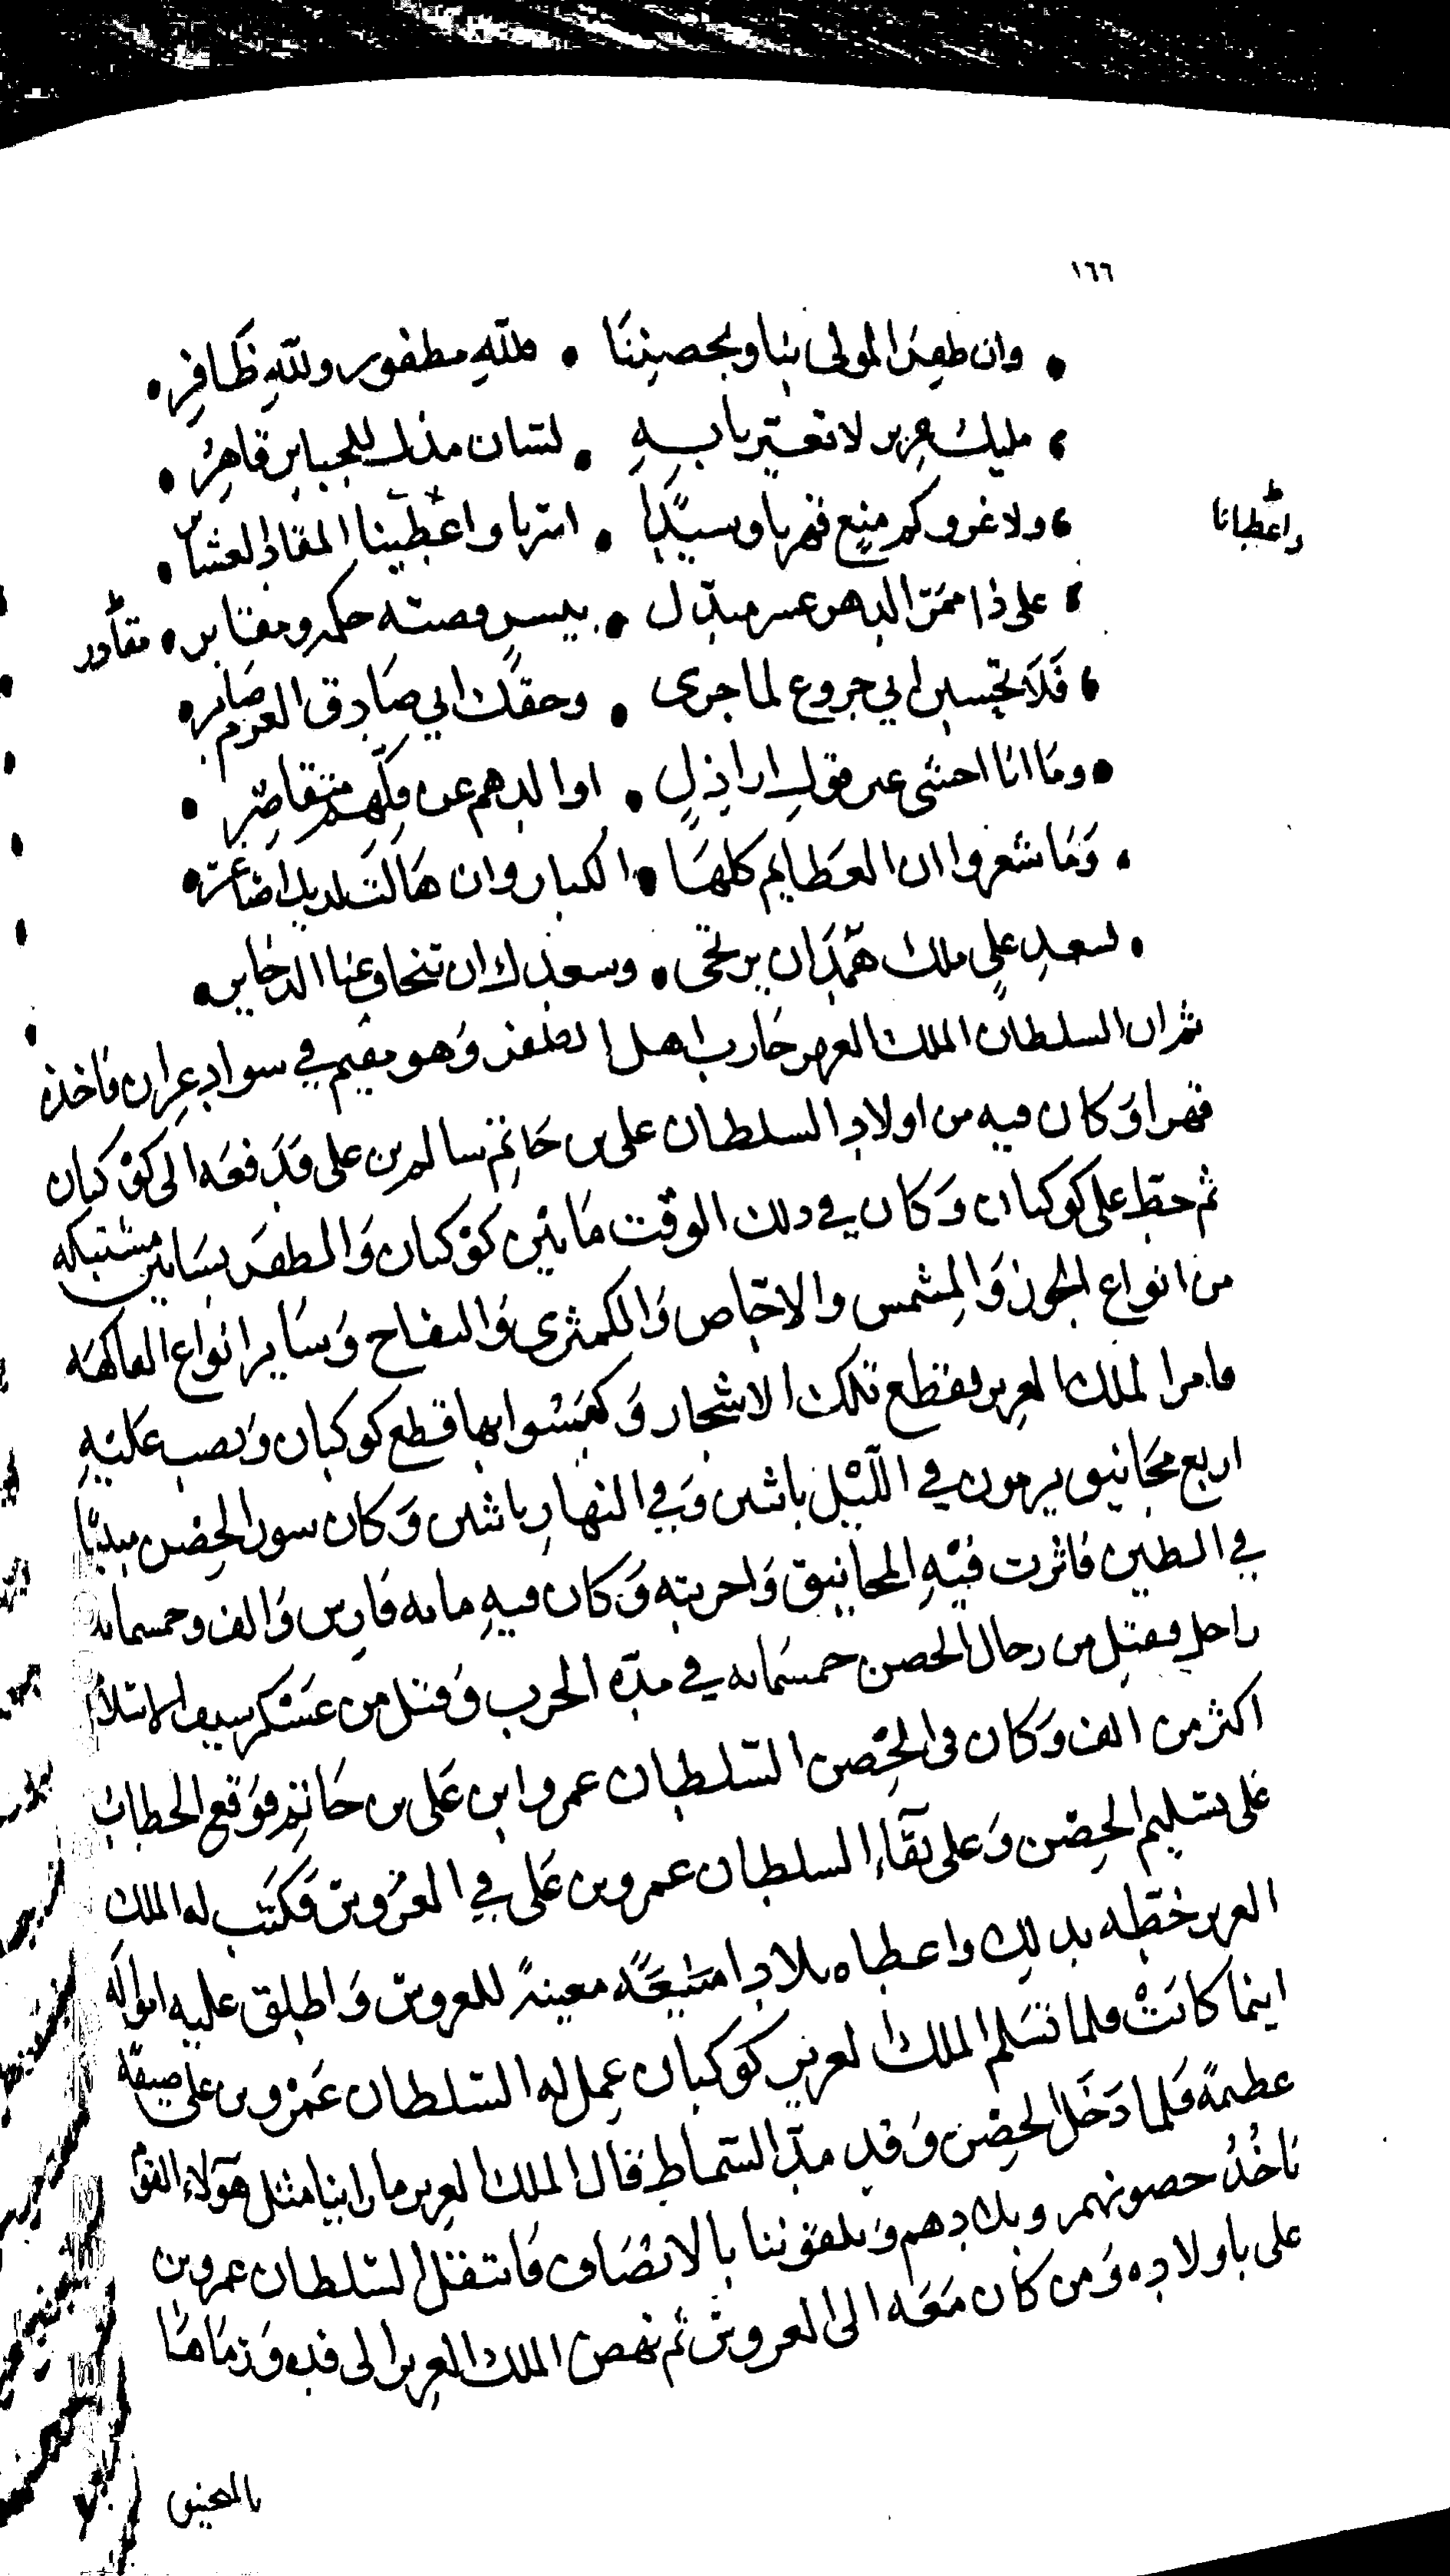 ١٦٦
وان ظفر المولى بنا وبحصيننا • فلله مظفور ولله ظافر •
مليك عزيز لا تعتبر بابه • لشان مذل للجبابر قاهر •
ولا غرو كم منع قهرنا وسيد • اسرنا واعطينا المقاد لعشاير • واعطانا
على ذا ممر الدهر عسر مبدل • بيسر وصته حكم ومقابر • مقادر
فلا تحسبن اني جزوع لما جرى • وحقك اني صادق العزم صابر •
وما انا اخشى عن قول اراذل • اوالدهم عن كلهم متقاصر •
وما شعروا ان العظايم كلها • الكبار وان هالت لديك اصاغر •
لسعد على ملك همدان يرتجى • وسعدك ان تنحاز عنا الدخاير •
ثم ان السلطان الملك العزيز حارب اهل الظفر وهو مقيم في سواد عزان فاخذه
قهرا وكان فيه من اولاد السلطان على بن حاتم سالم بن على فدفعه الى كوكبان
ثم حط على كوكبان وكان في ذلك الوقت ما بين كوكبان والظفر بساتين مشتبكه
من انواع الجوز والمشمس والاجاص والكمثرى والتفاح وساير انواع الفاكهه
فامر الملك العزيز فقطع تلك الاشجار وكبسوا بها قطع كوكبان ونصب عليه
اربع مجانيق يرمون في الليل باثنين وفي النهار باثنين وكان سور الحصن مبنيا
في الطين فاثرت فيه المجانيق واخربته وكان فيه مايه فارس والف وخمسمايه
راجل فقتل من رجال الحصن خمسمايه في مدة الحرب وقتل من عسكر سيف الاسلام
اكثر من الف وكان في الحصن السلطان عمرو ابن على بن حاتم فوقع الخطاب
على تسليم الحصن وعلى بقاء السلطان عمرو بن على في العروس فكتب له الملك
العزيز خطه بذلك واعطاه بلادا متيعة معينة للعروس واطلق عليه امواله
اينما كانت فلما تسلم الملك العزيز كوكبان عمل له السلطان عمرو بن على ضيفه
عظيمة فلما دخل الحصن وقد مد السماط قال الملك العزيز ما راينا مثل هولاء القوم
ناخذ حصونهم وبلادهم ويلقوننا بالانصاف فانتقل السلطان عمرو بن
على باولاده ومن كان معه الى العروس ثم نهض الملك العزيز الى فده ورماها
بالمجنيق